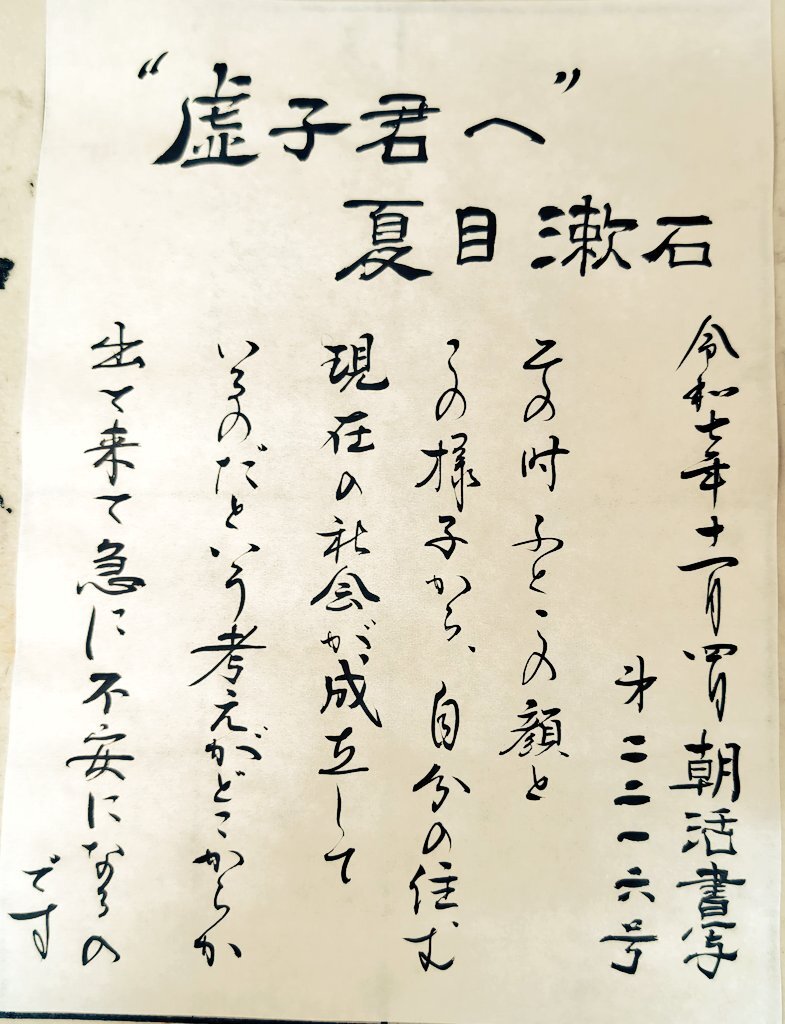 “虚子君へ”
夏目漱石
令和七年十一月四日 朝活書写
第二二一六号
その時ふとこの顔と
この様子から、自分の住む
現在の社会が成立して
いるのだという考えがどこからか
出て来て急に不安になるの
です